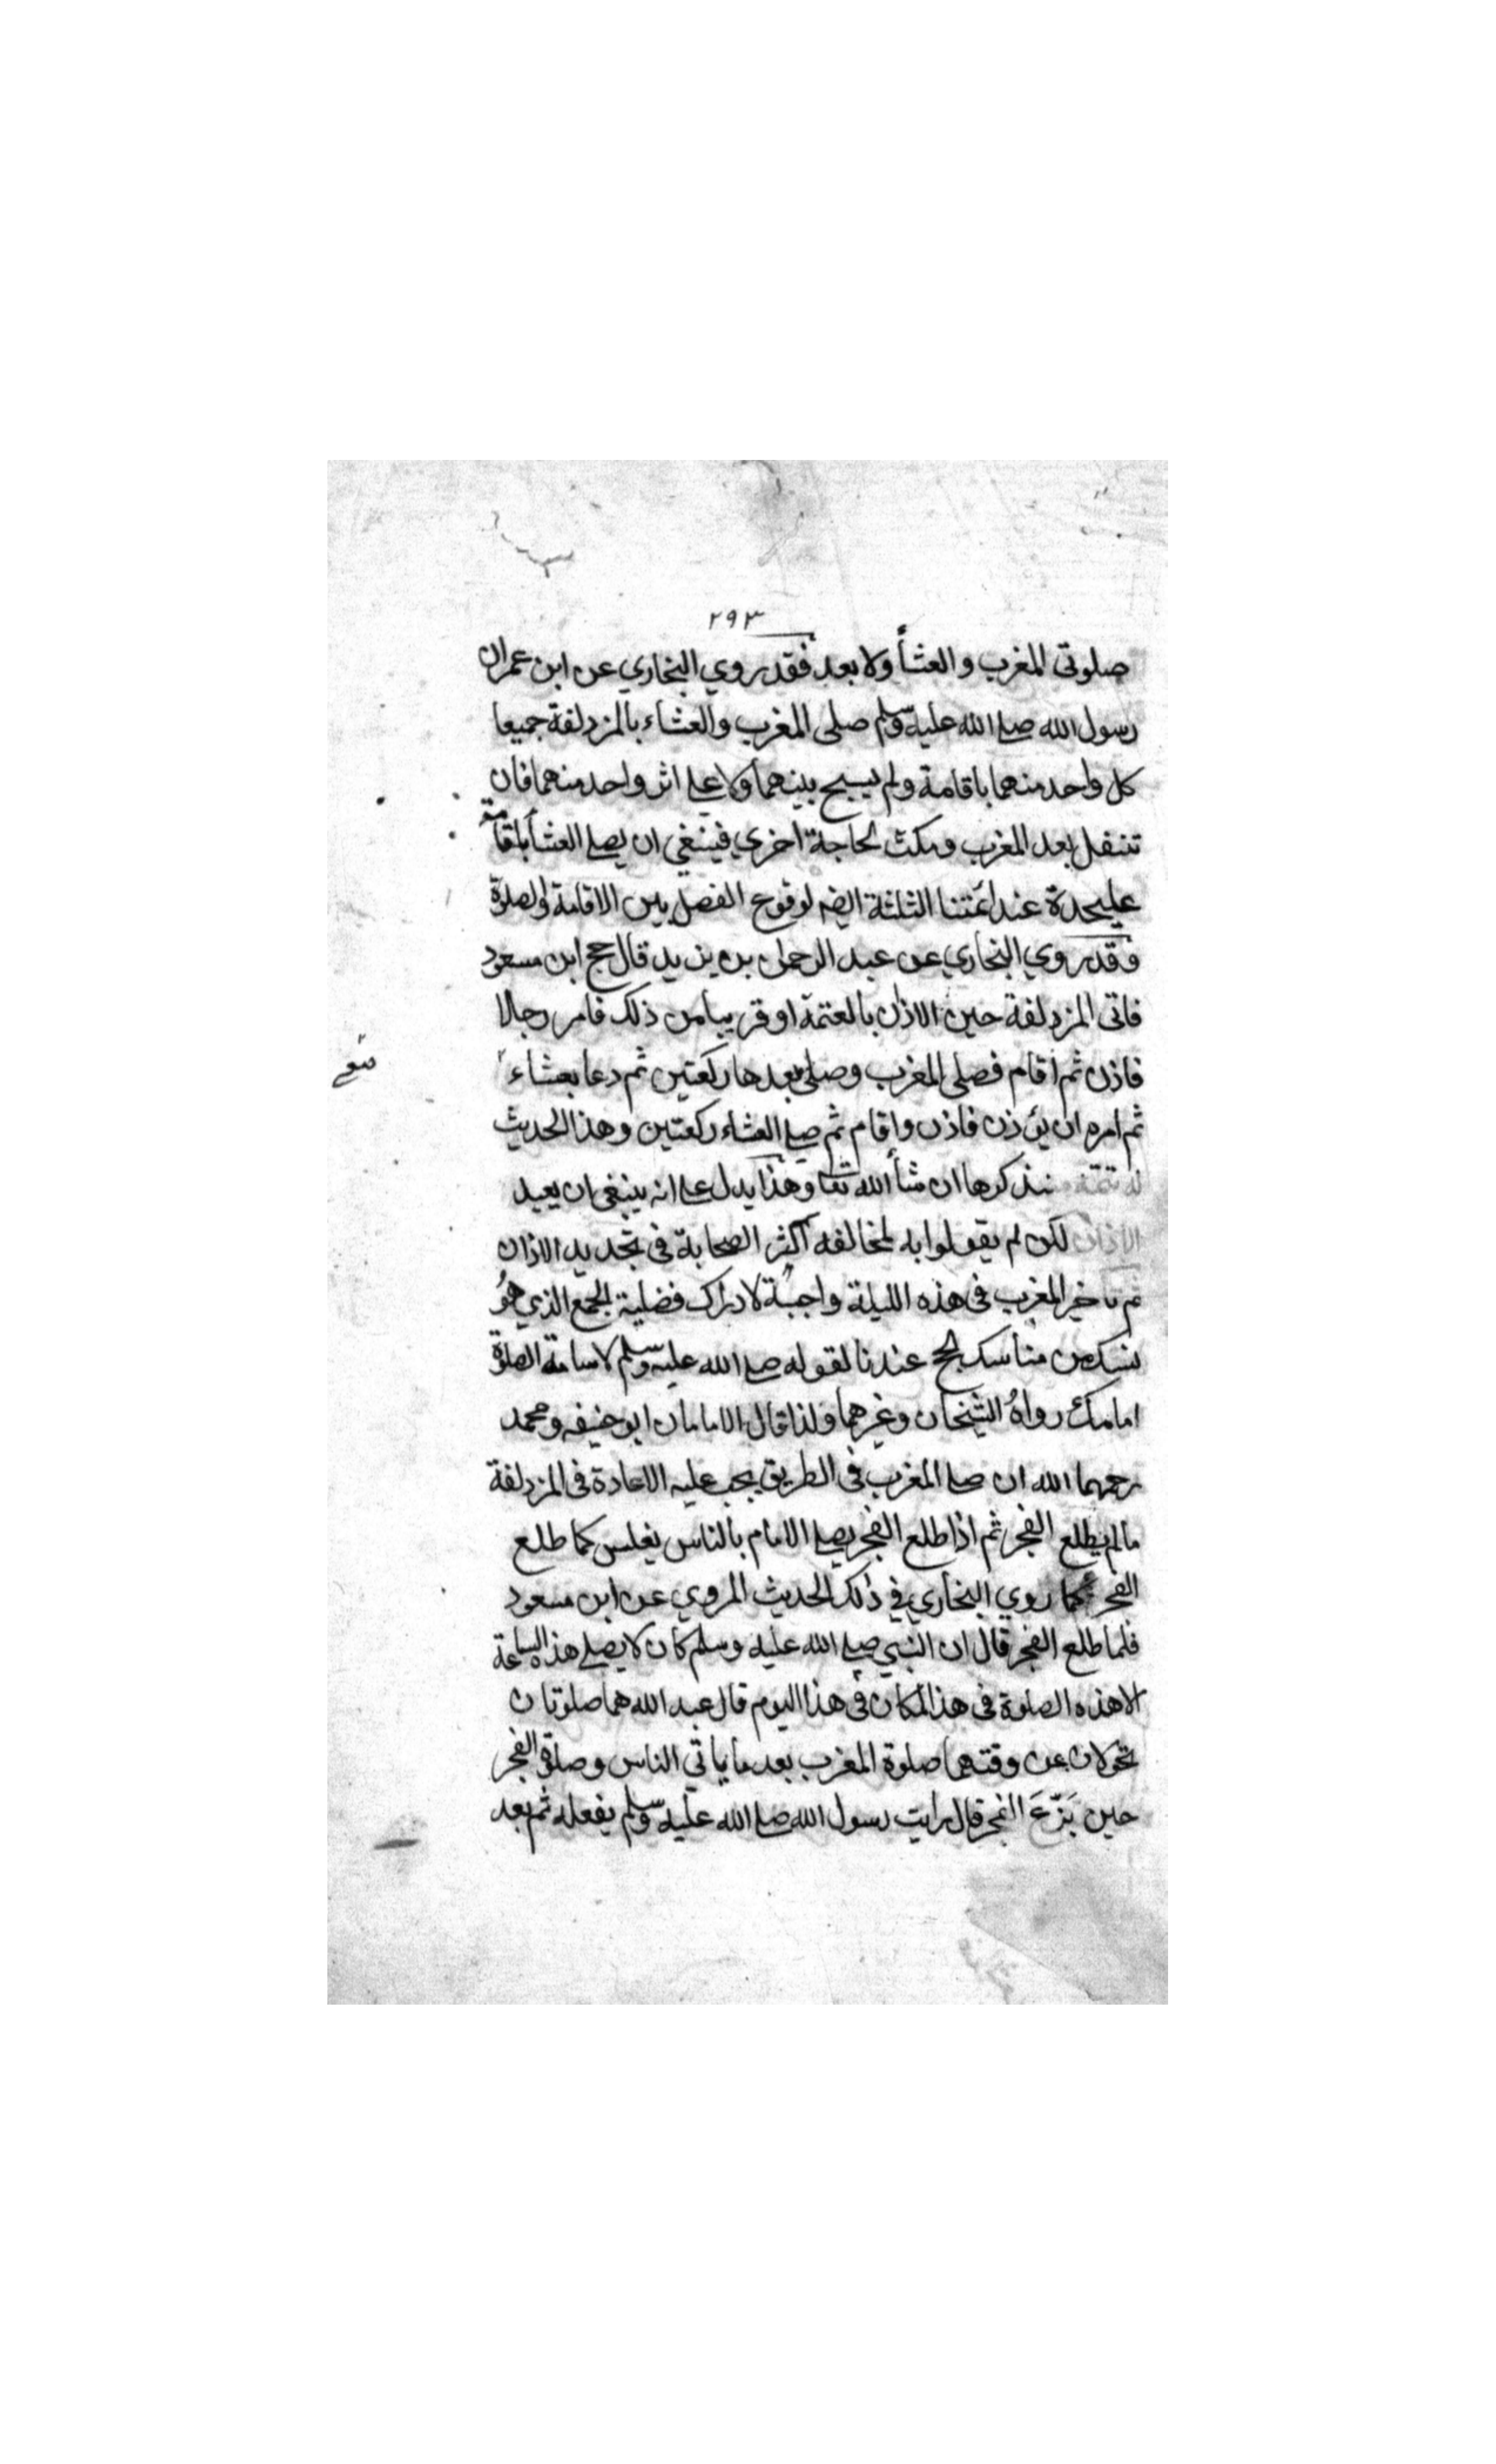 ٢٩٣
صلوتى المغرب والعشأ ولا بعد فقد روي البخاري عن ابن عمر ان
رسول الله صلے الله عليه وسلم صلى المغرب والعشاء بالمزدلفة جميعا
كل واحد منهما باقامة ولم يسبح بينهما ولا علے اثر واحد منهما فان
تنفل بعد المغرب ومكث لحاجة اخري فينبغي ان يصلے العشأ باقامة
عليحدة عند ائمتنا الثلثة ايضه لوقوع الفصل بين الاقامة والصلوة
وقد روي البخاري عن عبد الرحمان بن يزيد قال حج ابن مسعود
فاتى المزدلفة حين الاذان بالعتمة او قريبا من ذلك فامر رجالا
فاذن ثم اقام فصلى المغرب وصلى بعدها ركعتين ثم دعا بعشاء
ثم امره ان يئوذن فاذن واقام ثم صلے العشاء ركعتين وهذا الحديث
له تتمة سنذكرها ان شأ الله تعا وهذا يدل علے انه ينبغى ان يعيد
الاذان لكن لم يقولوا به لمخالفه اكثر الصحابة فى تجديد الاذان
ثم تاخير المغرب فى هذه الليلة واجبة لادراك فضلية الجمع الذي هو
نسك من مناسك الحج عندنا لقوله صلے الله عليه وسلم لاسامة الصلوة
امامك رواهُ الشيخان وغيرهما ولذا قال الامامان ابو حنيفه ومحمد
رحمهما الله ان صلے المغرب فى الطريق يجب عليه الاعادة فى المزدلفة
مالم يطلع الفجر ثم اذا طلع الفجر يصلے الامام بالناس بغلس كما طلع
الفجر كما روي البخاري في ذلك الحديث المروي عن ابن مسعود
فلما طلع الفجر قال ان النبي صلے الله عليه وسلم كان لا يصلے هذه الساعة
الا هذه الصلوة فى هذا المكان فى هذا اليوم قال عبد الله هما صلوتان
تحولان عن وقتهما صلوة المغرب بعد ما ياتي الناس وصلوة الفجر
حين بَزَغَ الفجر قال رايت رسول الله صلے الله عليه وسلم يفعله ثم بعد